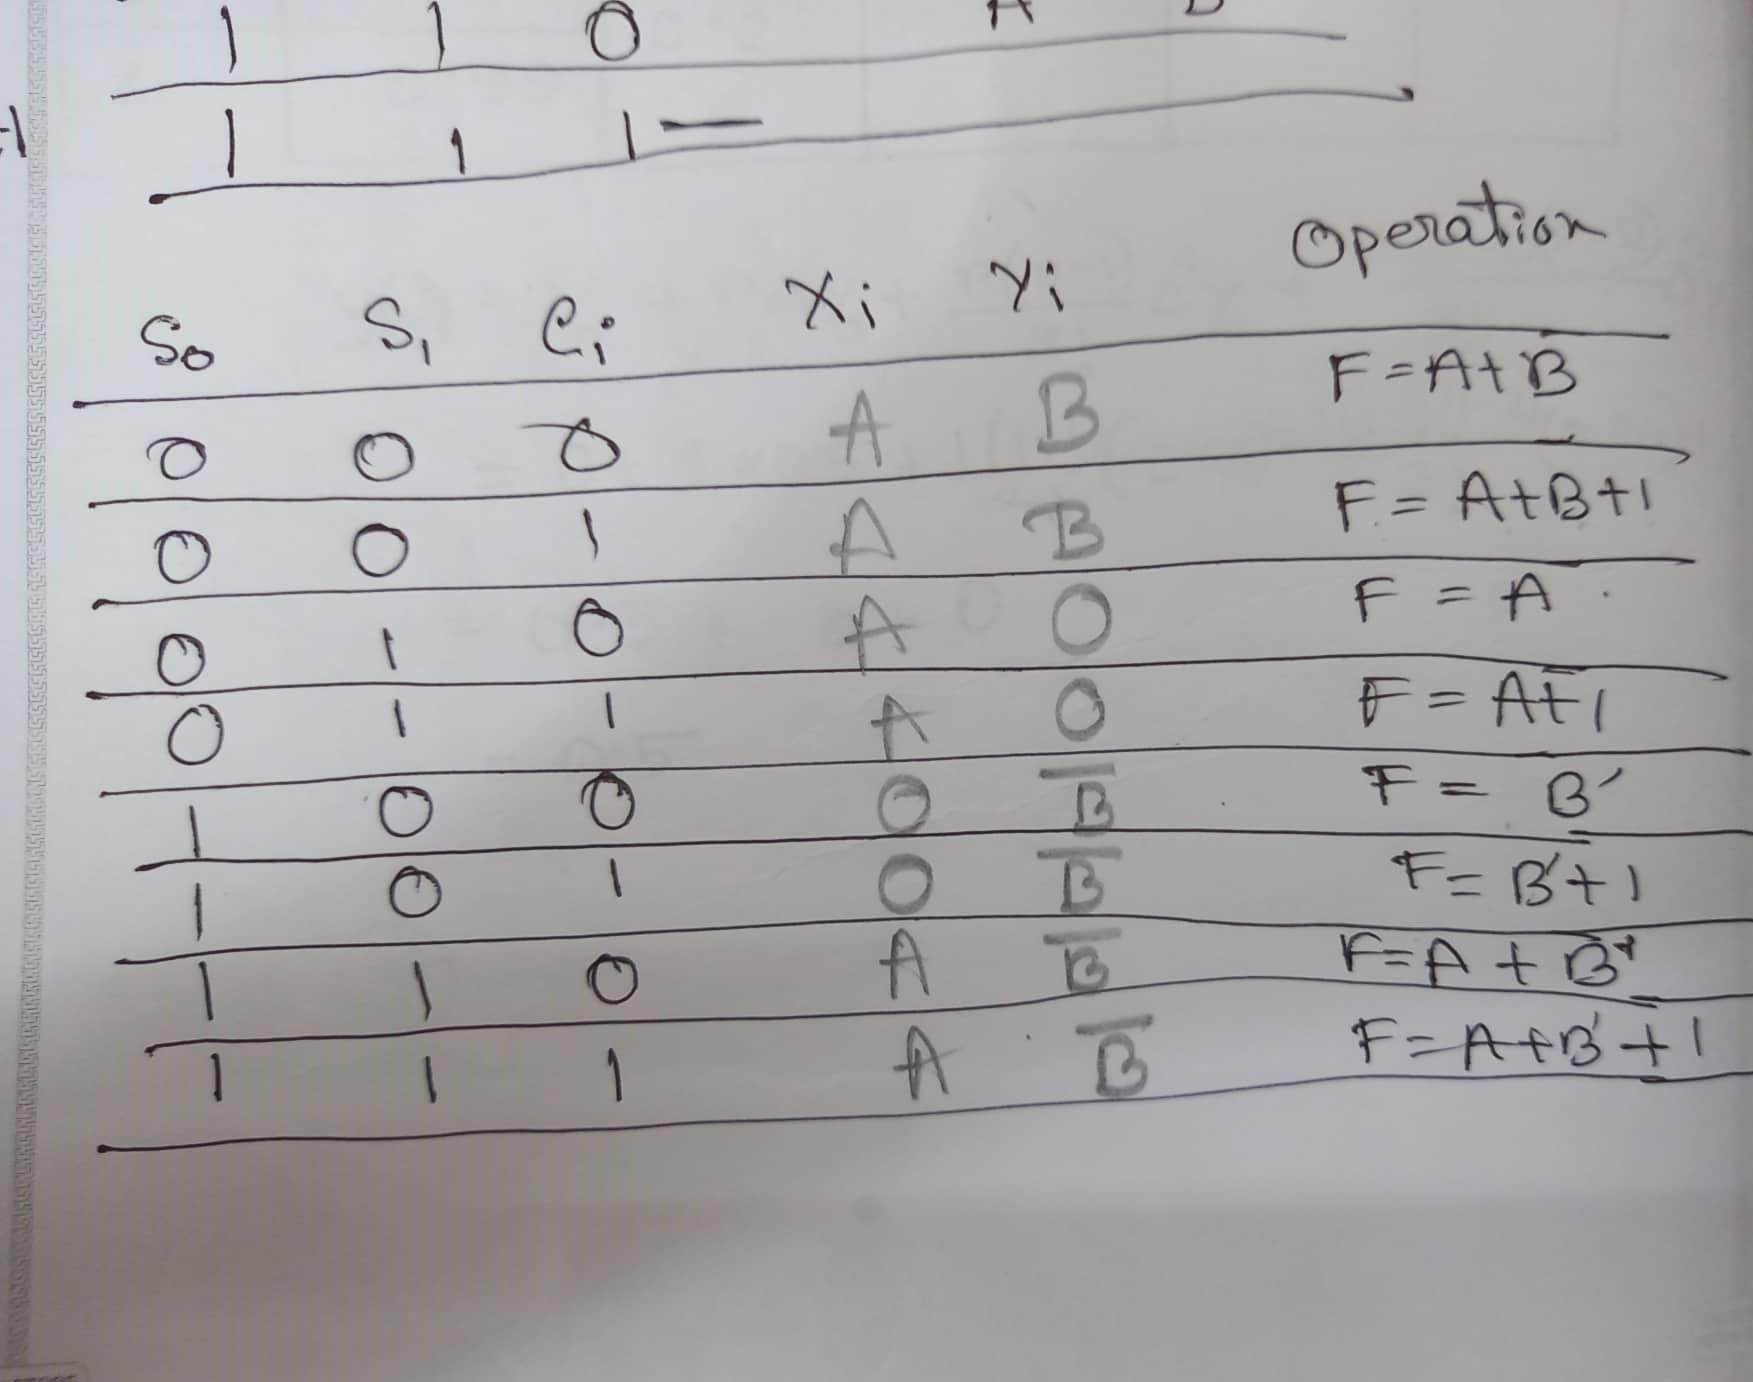 1 1 0 A B
-1 1 1 1 —
S₀ S₁ Cᵢ Xᵢ Yᵢ Operation
0 0 0 A B F = A + B
0 0 1 A B F = A + B + 1
0 1 0 A 0 F = A
0 1 1 A 0 F = A + 1
1 0 0 0 B̅ F = B′
1 0 1 0 B̅ F = B′ + 1
1 1 0 A B̅ F = A + B′
1 1 1 A B̅ F = A + B′ + 1